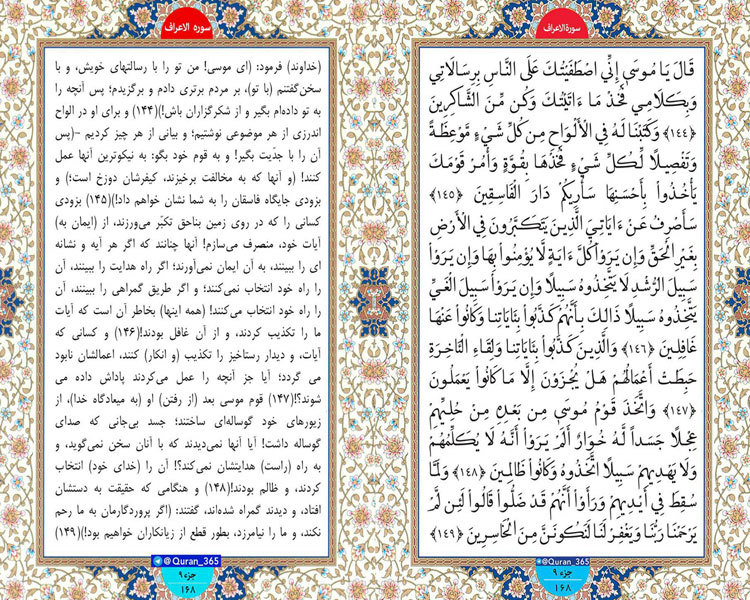 سورة الاعراف
قَالَ يَا مُوسَىٰ إِنِّي اصْطَفَيْتُكَ عَلَى النَّاسِ بِرِسَالَاتِي
وَبِكَلَامِي فَخُذْ مَا ءَاتَيْتُكَ وَكُن مِّنَ الشَّاكِرِينَ
﴿۱۴۴﴾ وَكَتَبْنَا لَهُ فِي الْأَلْوَاحِ مِن كُلِّ شَيْءٍ مَّوْعِظَةً
وَتَفْصِيلًا لِّكُلِّ شَيْءٍ فَخُذْهَا بِقُوَّةٍ وَأْمُرْ قَوْمَكَ
يَأْخُذُوا بِأَحْسَنِهَا سَأُرِيكُمْ دَارَ الْفَاسِقِينَ ﴿۱۴۵﴾
سَأَصْرِفُ عَنْ ءَايَاتِيَ الَّذِينَ يَتَكَبَّرُونَ فِي الْأَرْضِ
بِغَيْرِ الْحَقِّ وَإِن يَرَوْا كُلَّ ءَايَةٍ لَّا يُؤْمِنُوا بِهَا وَإِن يَرَوْا
سَبِيلَ الرُّشْدِ لَا يَتَّخِذُوهُ سَبِيلًا وَإِن يَرَوْا سَبِيلَ الْغَيِّ
يَتَّخِذُوهُ سَبِيلًا ذَالِكَ بِأَنَّهُمْ كَذَّبُوا بِـَٔايَاتِنَا وَكَانُوا عَنْهَا
غَافِلِينَ ﴿۱۴۶﴾ وَالَّذِينَ كَذَّبُوا بِـَٔايَاتِنَا وَلِقَاءِ الْـَٔاخِرَةِ
حَبِطَتْ أَعْمَالُهُمْ هَلْ يُجْزَوْنَ إِلَّا مَا كَانُوا يَعْمَلُونَ
﴿۱۴۷﴾ وَاتَّخَذَ قَوْمُ مُوسَىٰ مِن بَعْدِهِ مِنْ حُلِيِّهِمْ
عِجْلًا جَسَداً لَّهُ خُوَارٌ أَلَمْ يَرَوْا أَنَّهُ لَا يُكَلِّمُهُمْ
وَلَا يَهْدِيهِمْ سَبِيلًا اتَّخَذُوهُ وَكَانُوا ظَالِمِينَ ﴿۱۴۸﴾ وَلَمَّا
سُقِطَ فِي أَيْدِيهِمْ وَرَأَوْا أَنَّهُمْ قَدْ ضَلُّوا قَالُوا لَئِن لَّمْ
يَرْحَمْنَا رَبُّنَا وَيَغْفِرْ لَنَا لَنَكُونَنَّ مِنَ الْخَاسِرِينَ ﴿۱۴۹﴾
@Quran_365
جزء ۹
۱۶۸
سوره الاعراف
(خداوند) فرمود: (ای موسی! من تو را با رسالتهای خویش، و با
سخن‌گفتنم (با تو)، بر مردم برتری دادم و برگزیدم؛ پس آنچه را
به تو داده‌ام بگیر و از شکرگزاران باش!)(۱۴۴) و برای او در الواح
اندرزی از هر موضوعی نوشتیم؛ و بیانی از هر چیز کردیم -(پس
آن را با جدّیت بگیر! و به قوم خود بگو: به نیکوترین آنها عمل
کنند! (و آنها که به مخالفت برخیزند، کیفرشان دوزخ است؛) و
بزودی جایگاه فاسقان را به شما نشان خواهم داد!)(۱۴۵) بزودی
کسانی را که در روی زمین بناحق تکبّر می‌ورزند، از (ایمان به)
آیات خود، منصرف می‌سازم! آنها چنانند که اگر هر آیه و نشانه
ای را ببینند، به آن ایمان نمی‌آورند؛ اگر راه هدایت را ببینند، آن
را راه خود انتخاب نمی‌کنند؛ و اگر طریق گمراهی را ببینند، آن
را راه خود انتخاب می‌کنند! (همه اینها) بخاطر آن است که آیات
ما را تکذیب کردند، و از آن غافل بودند!(۱۴۶) و کسانی که
آیات، و دیدار رستاخیز را تکذیب (و انکار) کنند، اعمالشان نابود
می گردد؛ آیا جز آنچه را عمل می‌کردند پاداش داده می
شوند؟!(۱۴۷) قوم موسی بعد (از رفتن) او (به میعادگاه خدا)، از
زیورهای خود گوساله‌ای ساختند؛ جسد بی‌جانی که صدای
گوساله داشت! آیا آنها نمی‌دیدند که با آنان سخن نمی‌گوید، و
به راه (راست) هدایتشان نمی‌کند؟! آن را (خدای خود) انتخاب
کردند، و ظالم بودند!(۱۴۸) و هنگامی که حقیقت به دستشان
افتاد، و دیدند گمراه شده‌اند، گفتند: (اگر پروردگارمان به ما رحم
نکند، و ما را نیامرزد، بطور قطع از زیانکاران خواهیم بود!)(۱۴۹)
@Quran_365
جزء ۹
۱۶۸